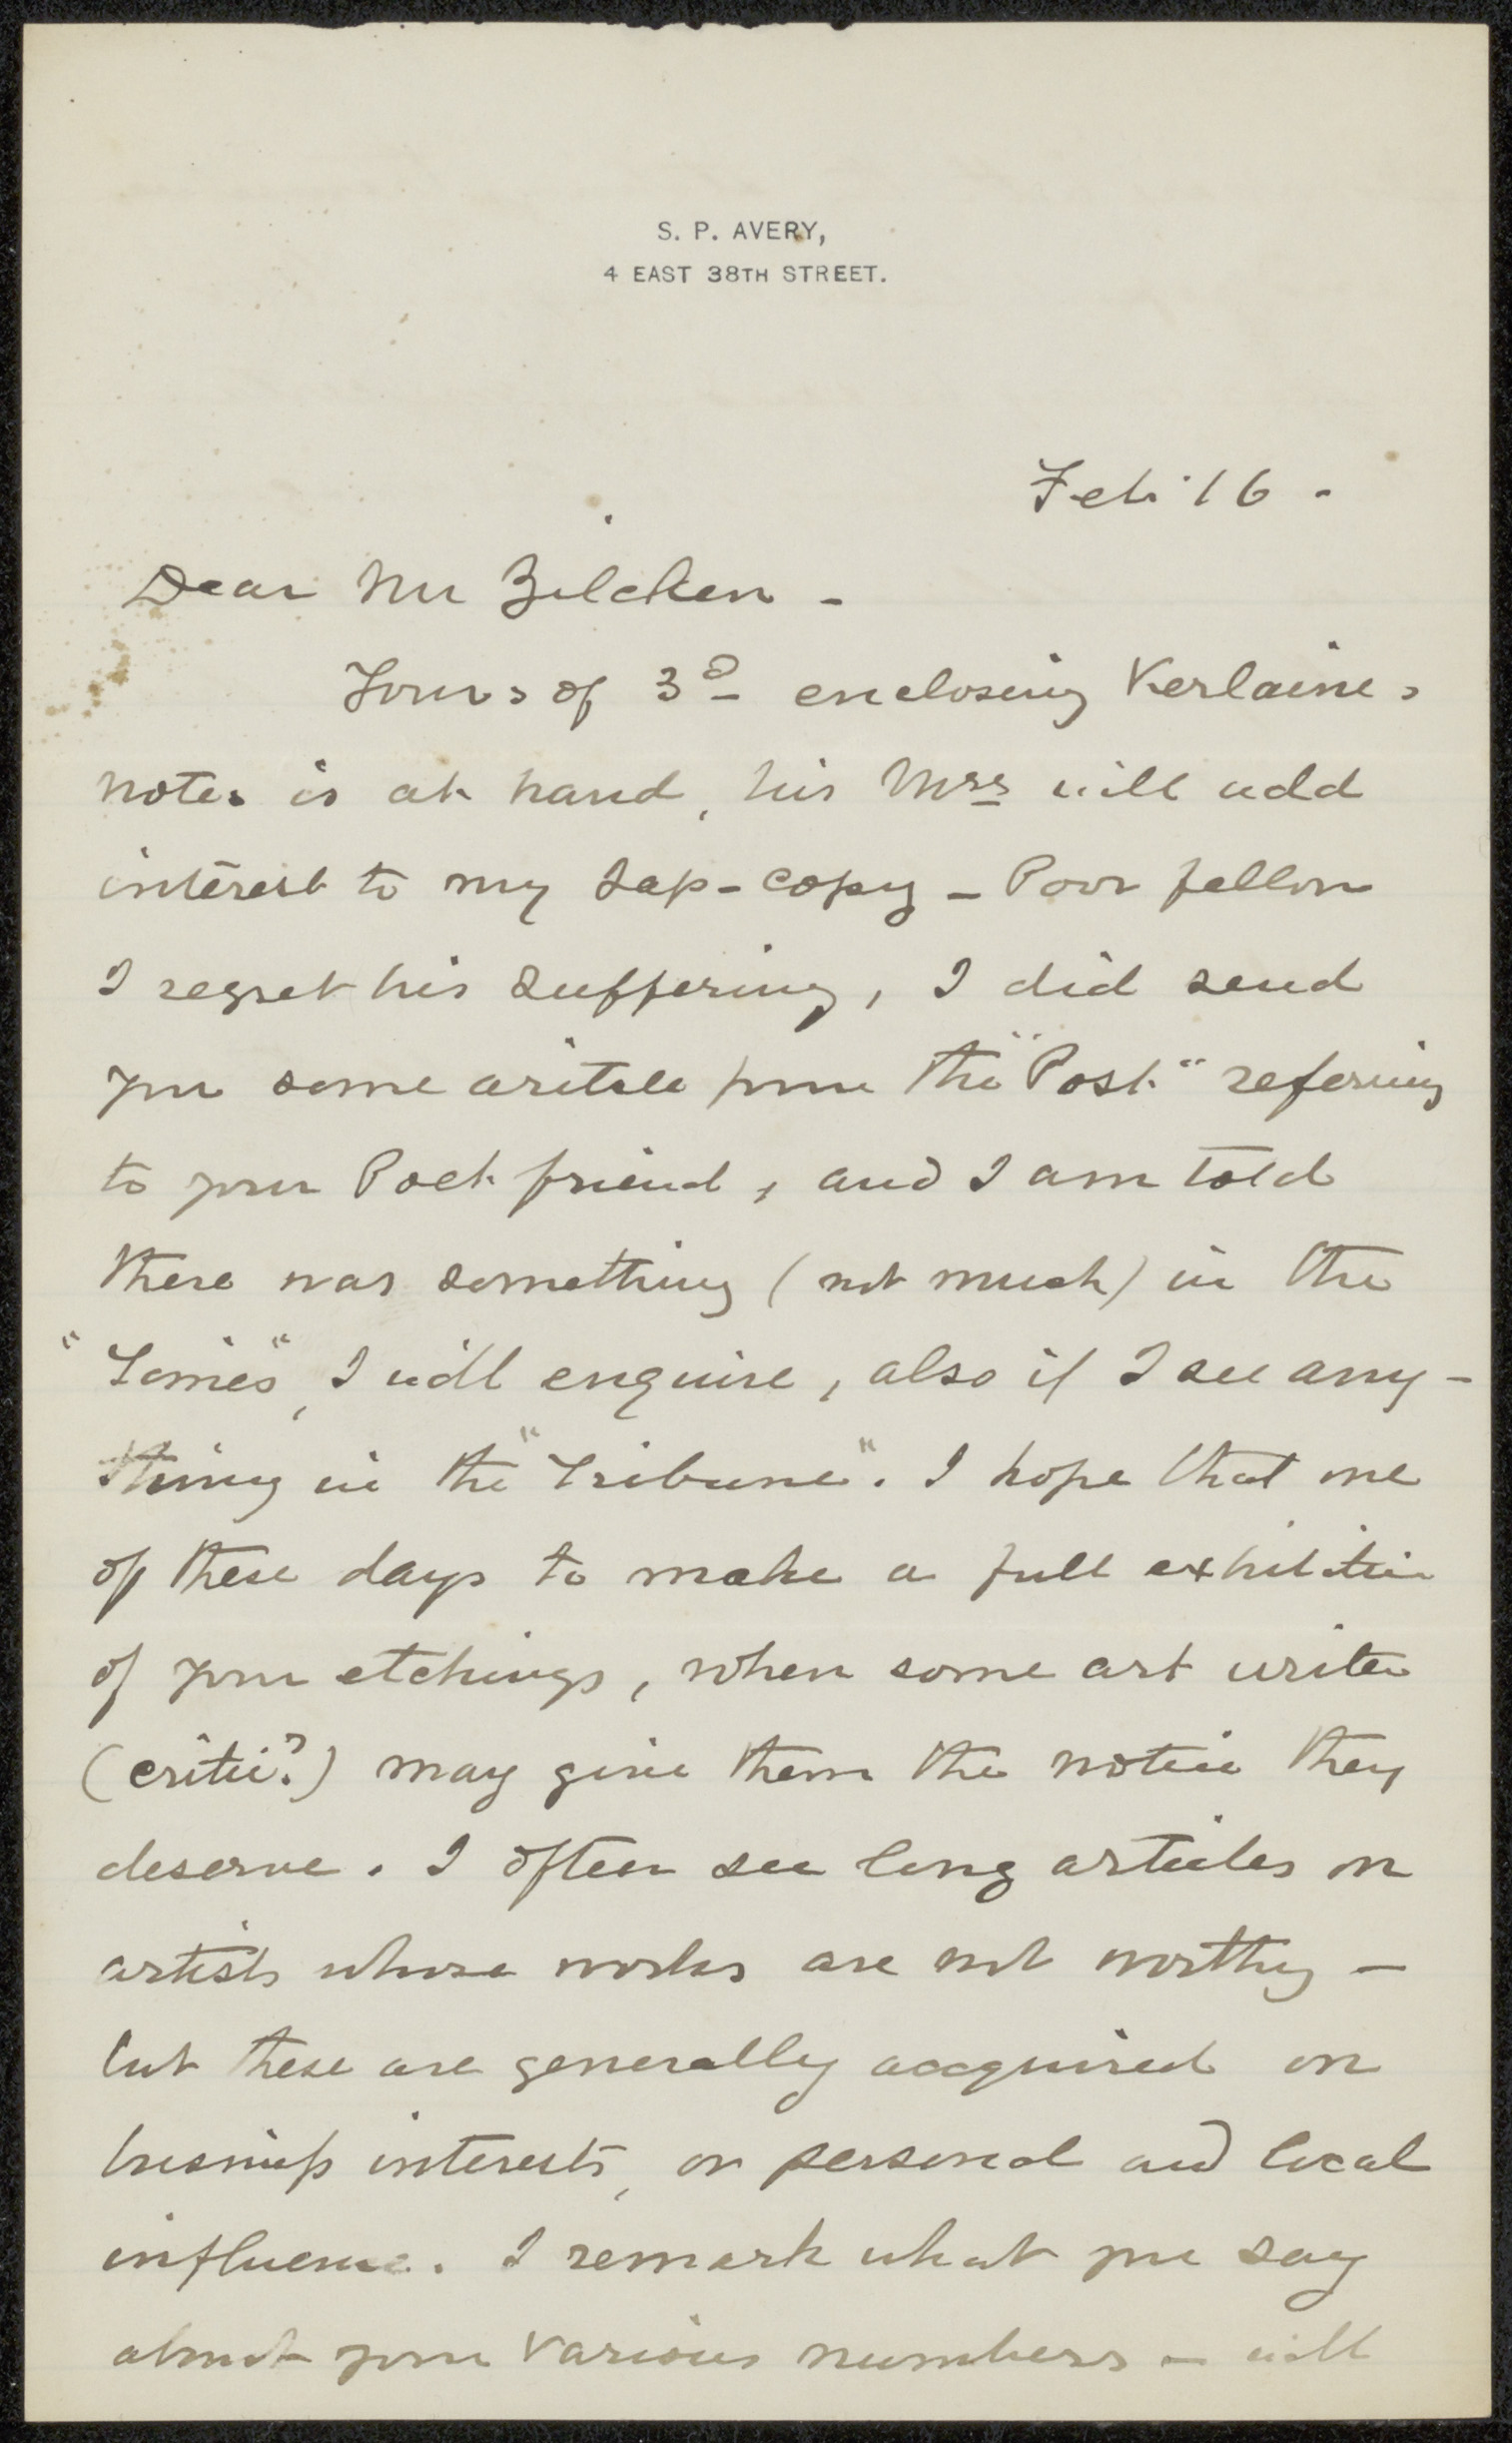 S. P. AVERY,
4 EAST 38TH STREET.
Feb. 16 -
Dear Mr Zilcken -
Yours of 3d enclosing Verlaines
note is at hand, his Mss will add
interest to my Jap-copy - Poor fellow
I regret his suffering, I did send
you some article from the "Post" refering
to your Poet friend, and I am told
there was something (not much) in the
"Times", I will enquire, also if I see any-
thing in the "Tribune". I hope that one
of these days to make a full exhibition
of your etchings, when some art writer
(critic?) may give them the notice they
deserve. I often see long articles on
artists whose works are not worthy -
but these are generally acquired on
business interests, or personal and local
influence. I remark what you say
about your various numbers - will